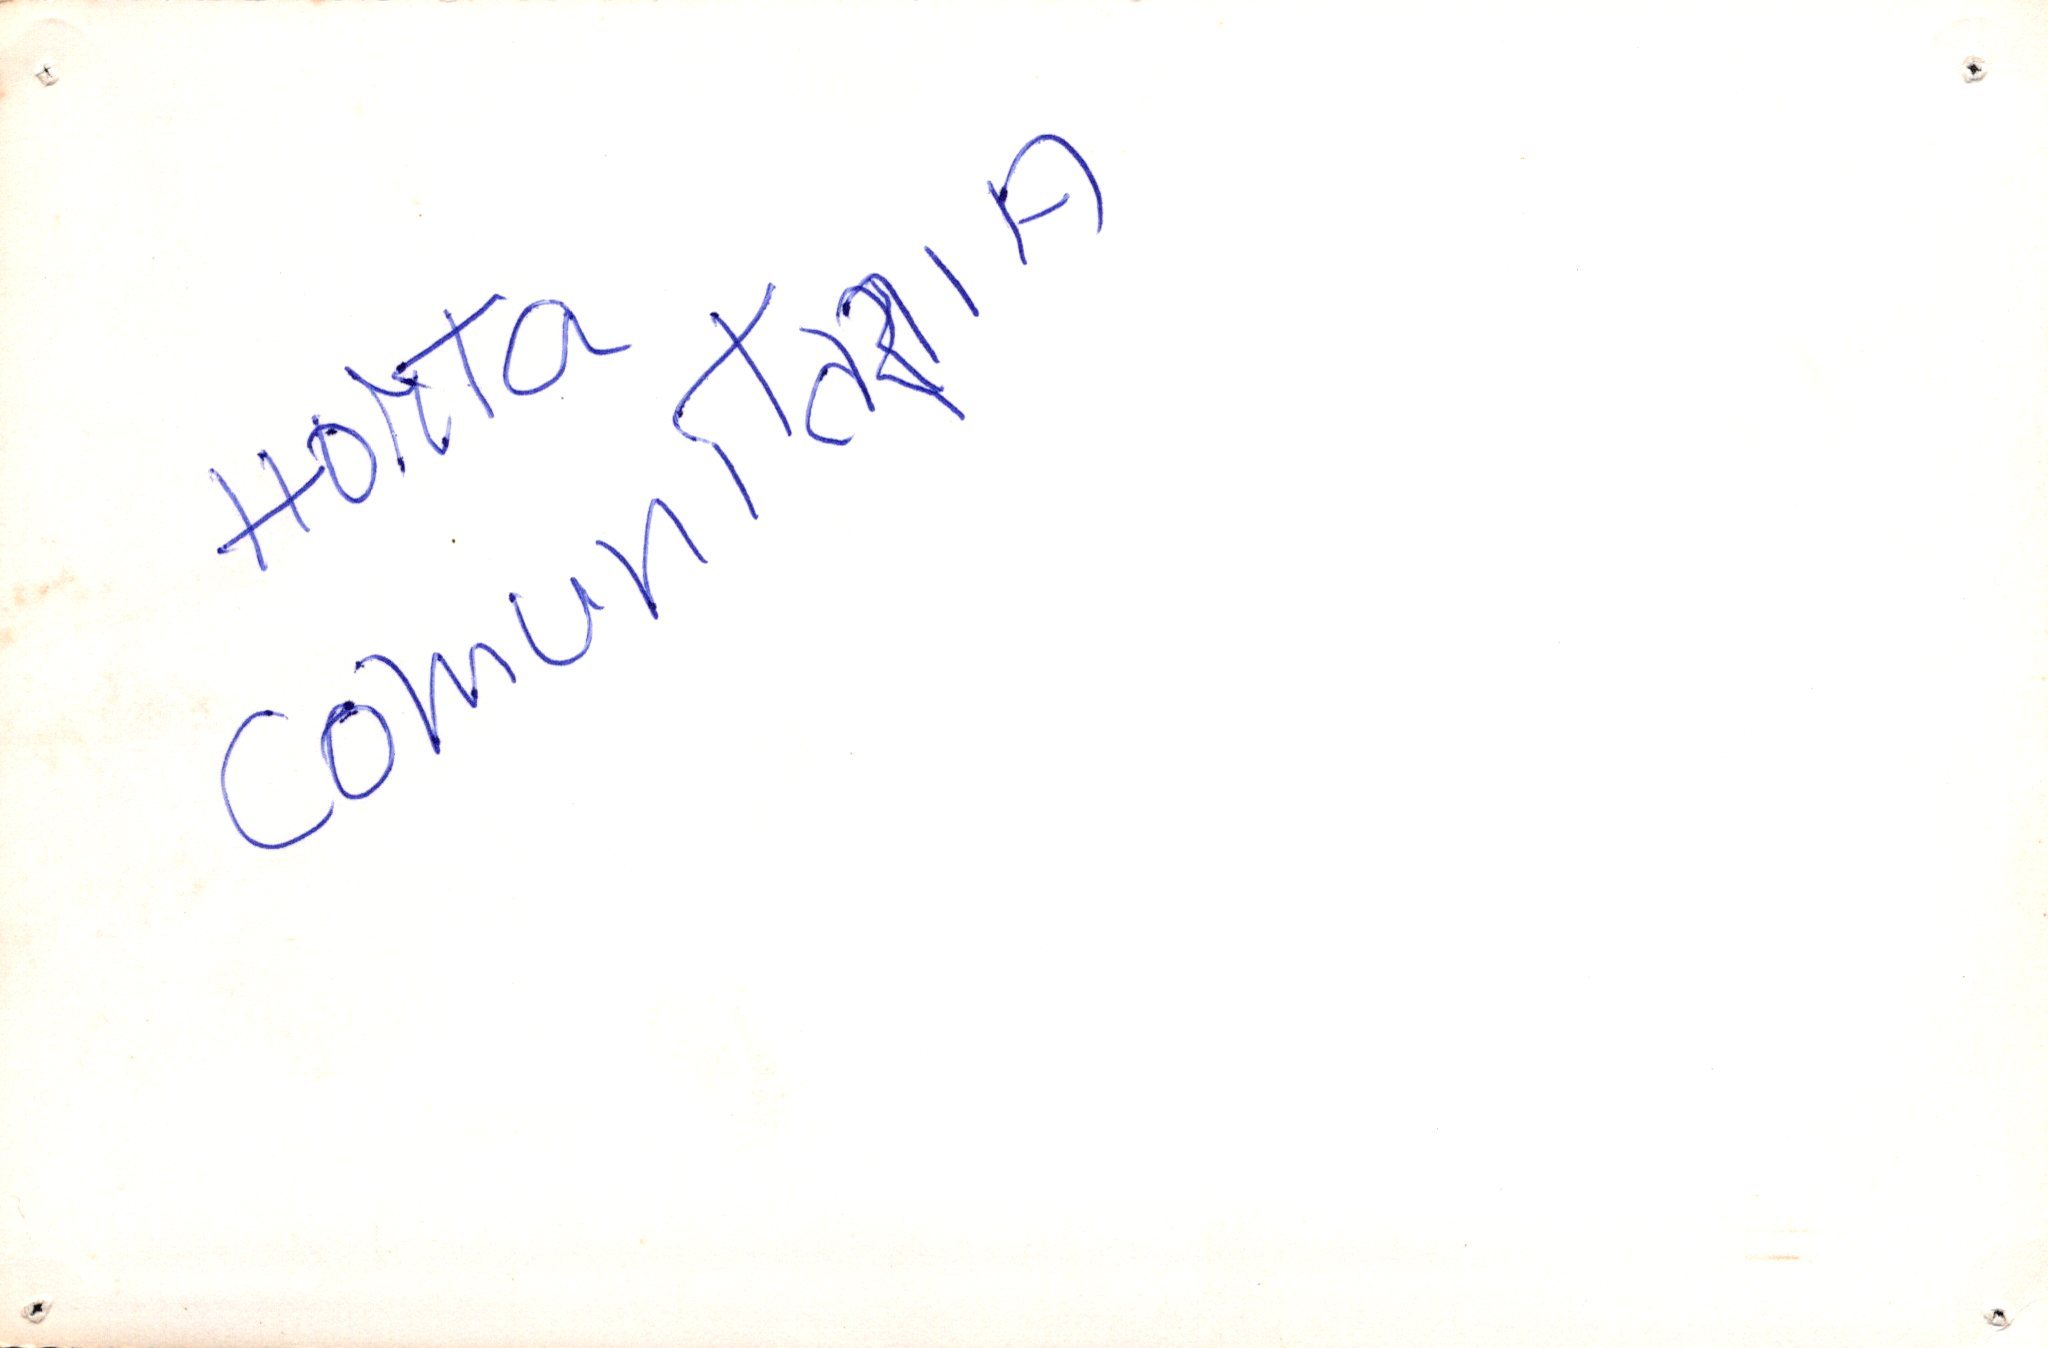 HORTa
COMUNTARIA